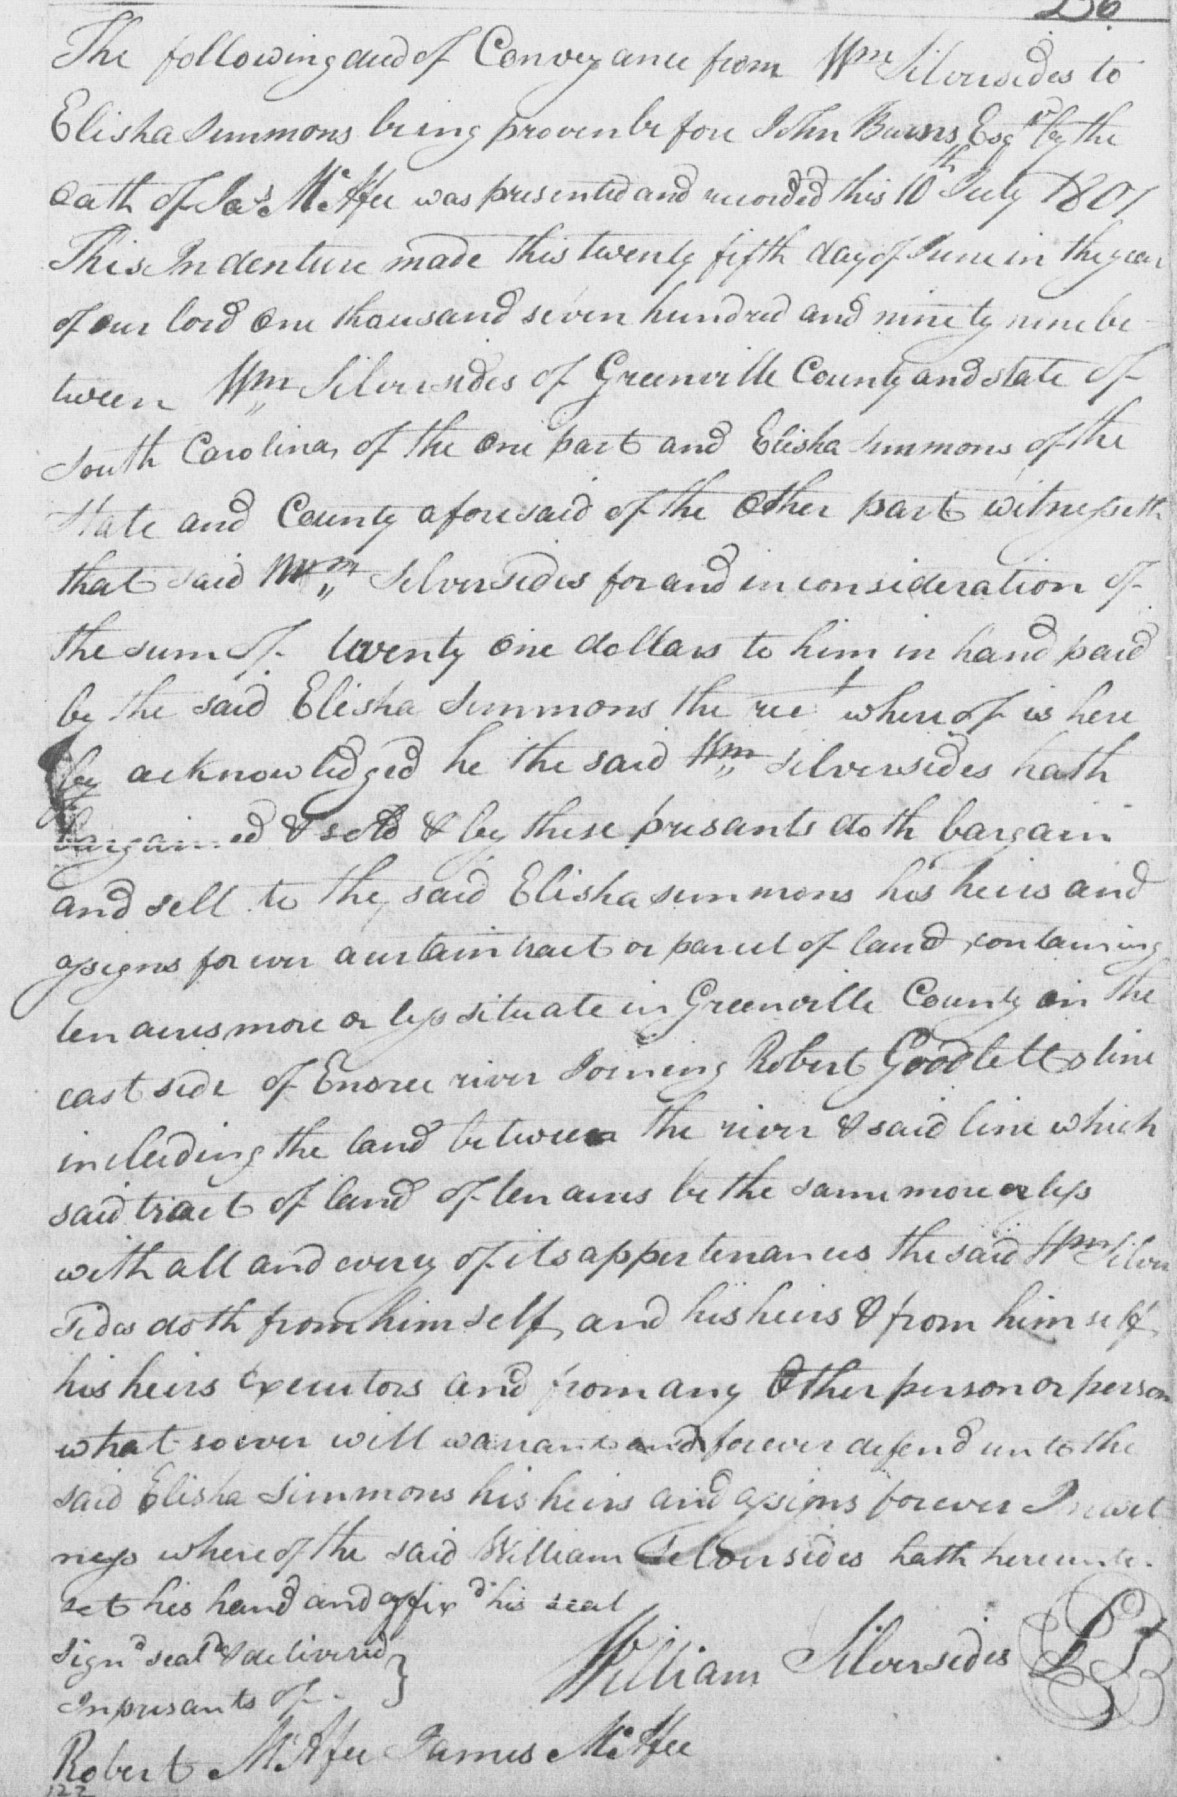 The following deed of Conveyance from Wm Silversides to
Elisha Simmons being proven before John Burns, Esqr by the
oath of Jas McAfee was presented and recorded this 10th July 1801
This Indenture made this twenty fifth day of June in the year
of our lord One thousand seven hundred and ninety nine be-
tween Wm Silversides of Greenville County and State of
South Carolina, of the One part and Elisha Simmons of the
State and County aforesaid of the Other part witnesseth
that said Wm Silversides for and in consideration of
the sum of twenty one dollars to him in hand paid
by the said Elisha Simmons the rect whereof is here
by acknowledged he the said Wm Silversides hath
bargained & sold & by these prisants doth bargain
and sell to the said Elisha Simmons his heirs and
assigns forever a certain tract or parcel of land containing
ten acres more or less situate in Greenville County on the
east side of Enoree river Joining Robert Goodletts line
including the land between the river & said line which
said tract of land of ten acres be the same more or less
with all and every of its appertenances the said Wm Silver
sides doth from himself, and his heirs & from himself,
his heirs Executors and from any Other person or person
what soever will warrant and forever defend unto the
said Elisha Simmons his heirs and assigns forever In wit
ness where of the said William Silversides hath hereunto
set his hand and affixd his seal
Signd seald & delivered }
In prisants of
William Silversides LS
Robert McAfee James McAfee
122